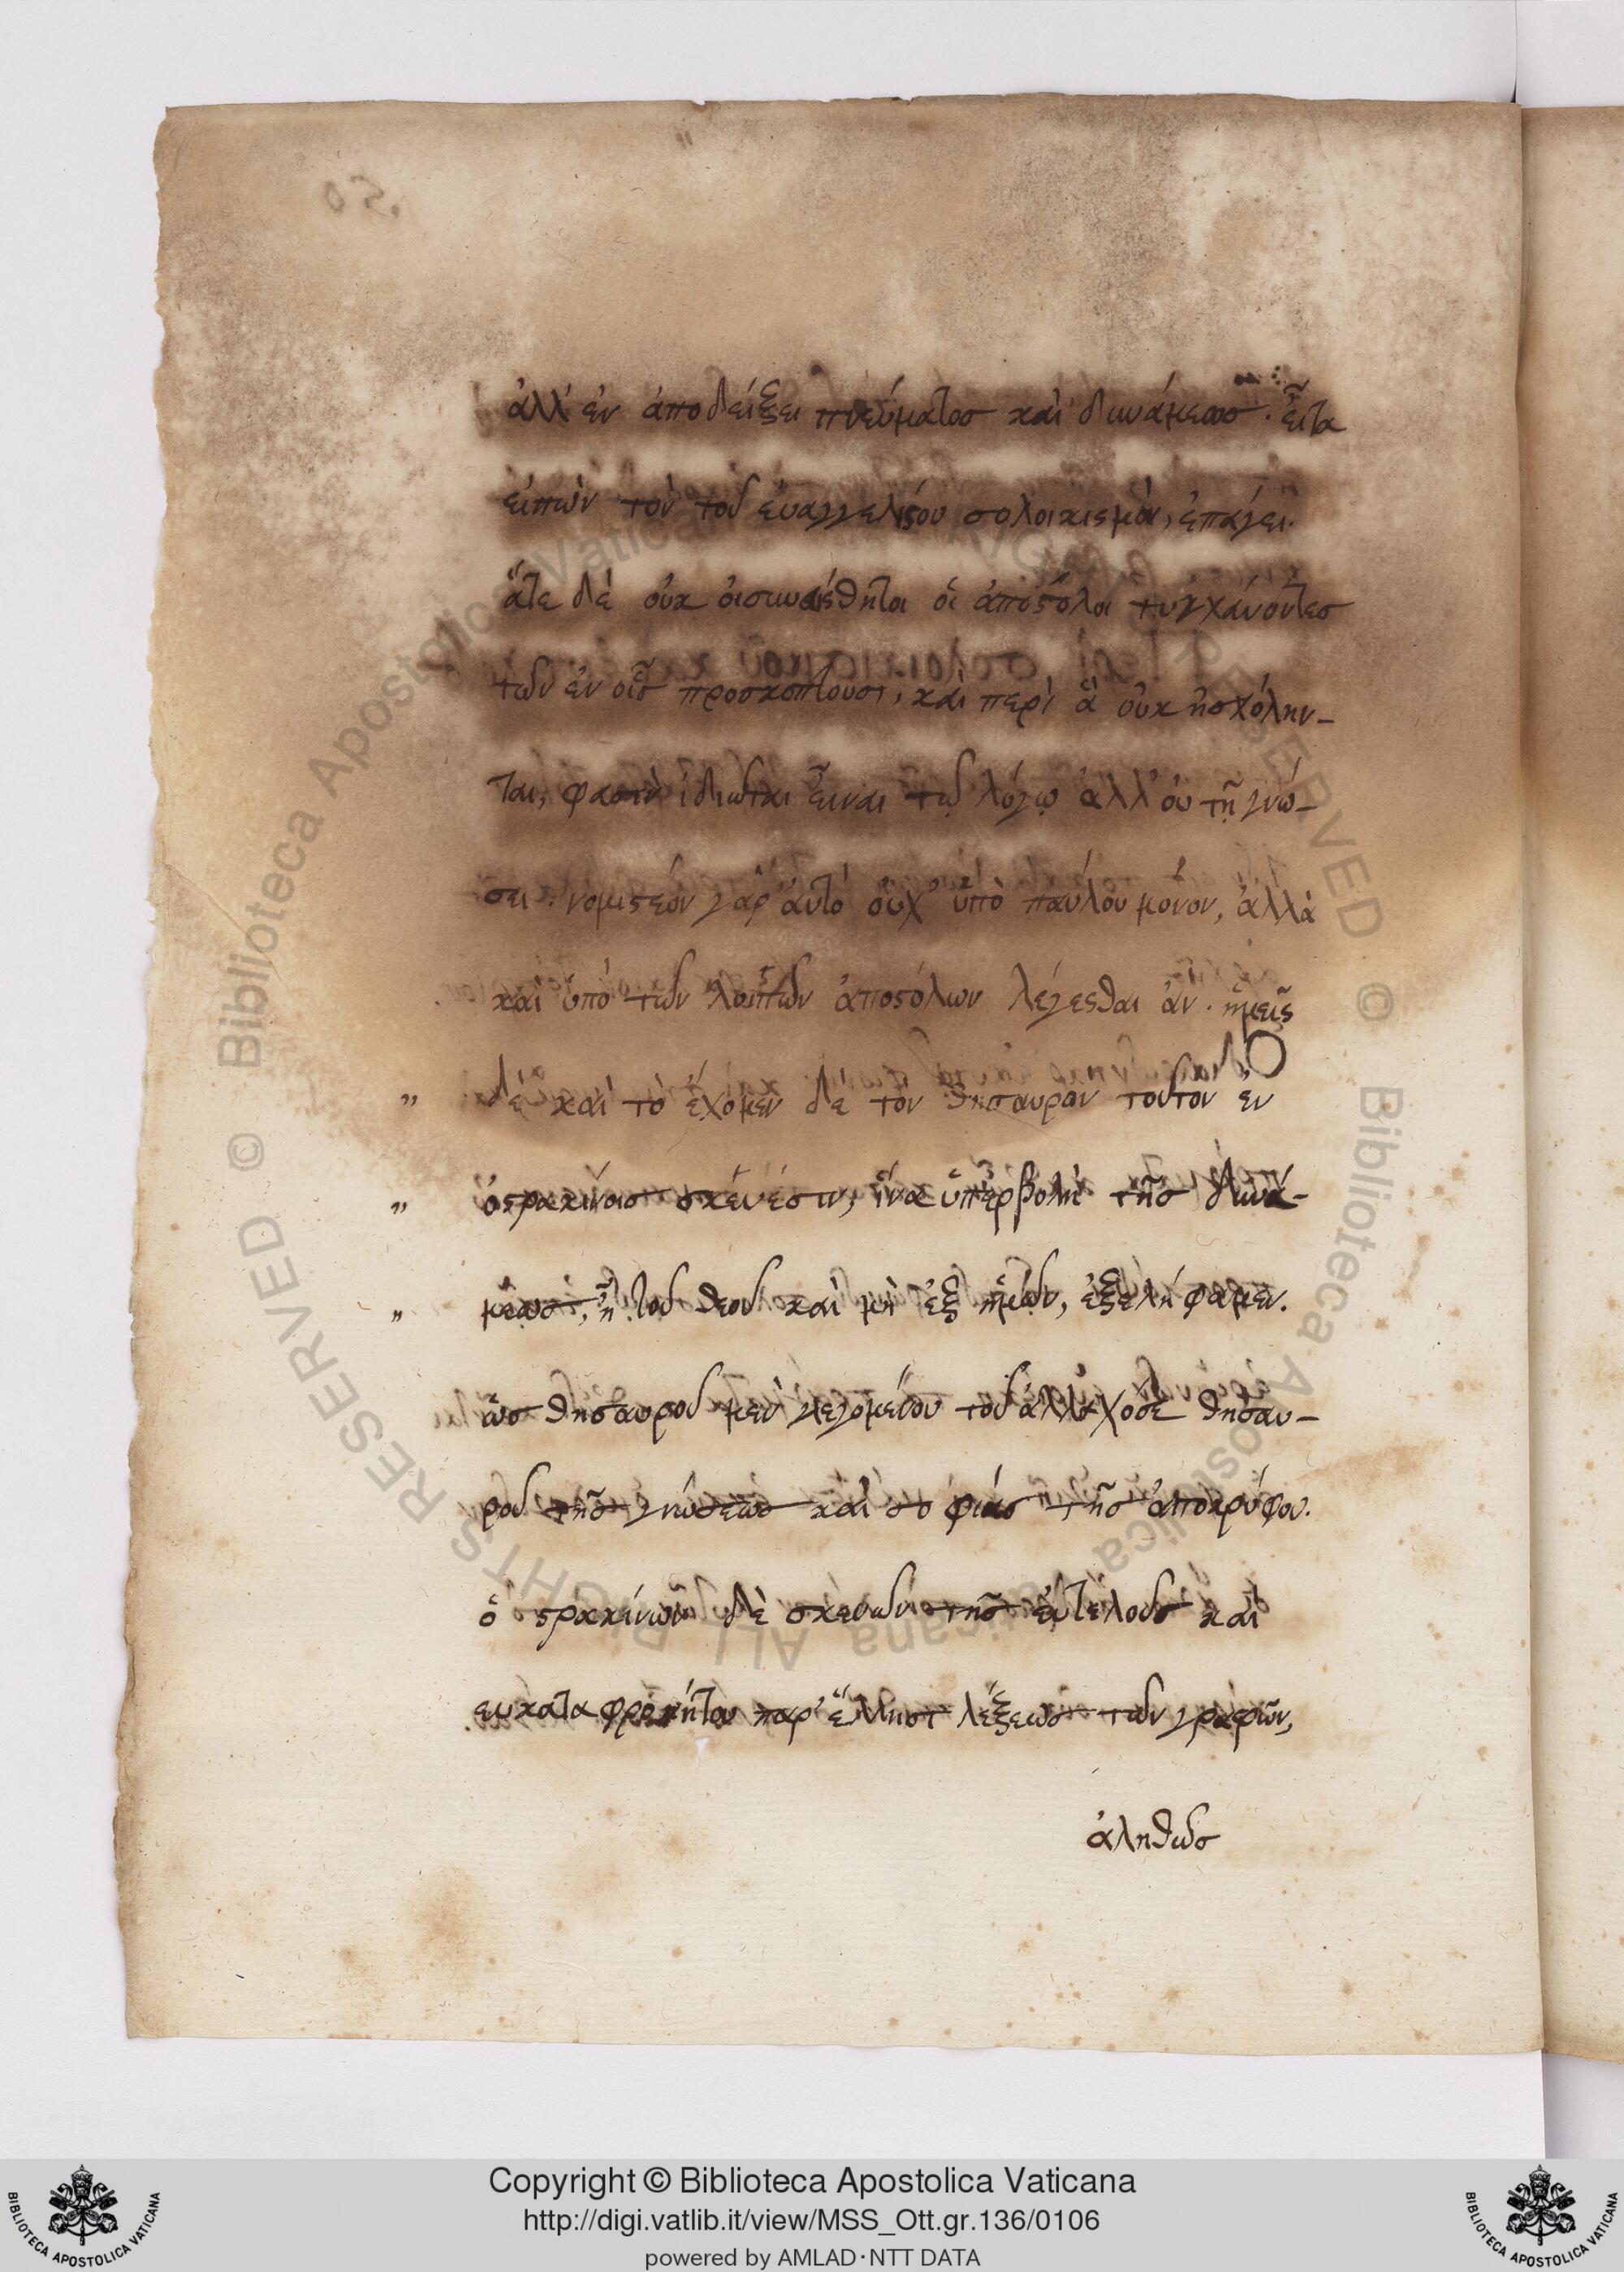 ἀλλ' ἐν ἀποδείξει πνεύματος καὶ δυνάμεως. εἶτα
εἰπὼν τὸν τοῦ ἐυαγγελίου σολοικισμὸν, ἐπάγει.
ἅτε δὲ οὐκ ἀσυναίσθητοι οἱ ἀπόστολοι τυγχάνοντες
τῶν ἐν οἷς προσκόπτουσι, καὶ περὶ ἃ οὐκ ἠσχόλην-
ται, φασὶν ἰδιῶται εἶναι τῷ λόγῳ ἀλλ' οὐ τῇ γνώ-
σει. νομιστέον γὰρ αὐτὸ οὐχ' ὑπὸ παύλου μόνον, ἀλλὰ
καὶ ὑπὸ τῶν λοιπῶν ἀποστόλων λέγεσθαι ἄν. ἡμεῖς
" δὲ καὶ τὸ ἔχομεν δὲ τὸν θησαυρὸν τοῦτον ἐν
" ὀστρακίνοις σκεύεσιν, ἵνα ὑπερβολὴ τῆς δυνά-
" μεως, ᾖ τοῦ θεοῦ καὶ μὴ ἐξ ἡμῶν, ἐξειλήφαμεν.
ὡς θησαυροῦ μὲν λεγομένου τοῦ ἀλλαχόσε θησαυ-
ροῦ τῆς γνώσεως καὶ σοφίας τῆς ἀποκρύφου.
ὀστρακίνων δὲ σκευῶν τῆς εὐτελοῦς καὶ
ευκαταφρονήτου παρ' ἕλλησι λέξεως τῶν γραφῶν,
ἀληθῶς
50
Copyright © Biblioteca Apostolica Vaticana
http://digi.vatlib.it/view/MSS_Ott.gr.136/0106
powered by AMLAD·NTT DATA
BIBLIOTECA APOSTOLICA VATICANA
BIBLIOTECA APOSTOLICA VATICANA
© Biblioteca Apostolica Vaticana ALL RIGHTS RESERVED